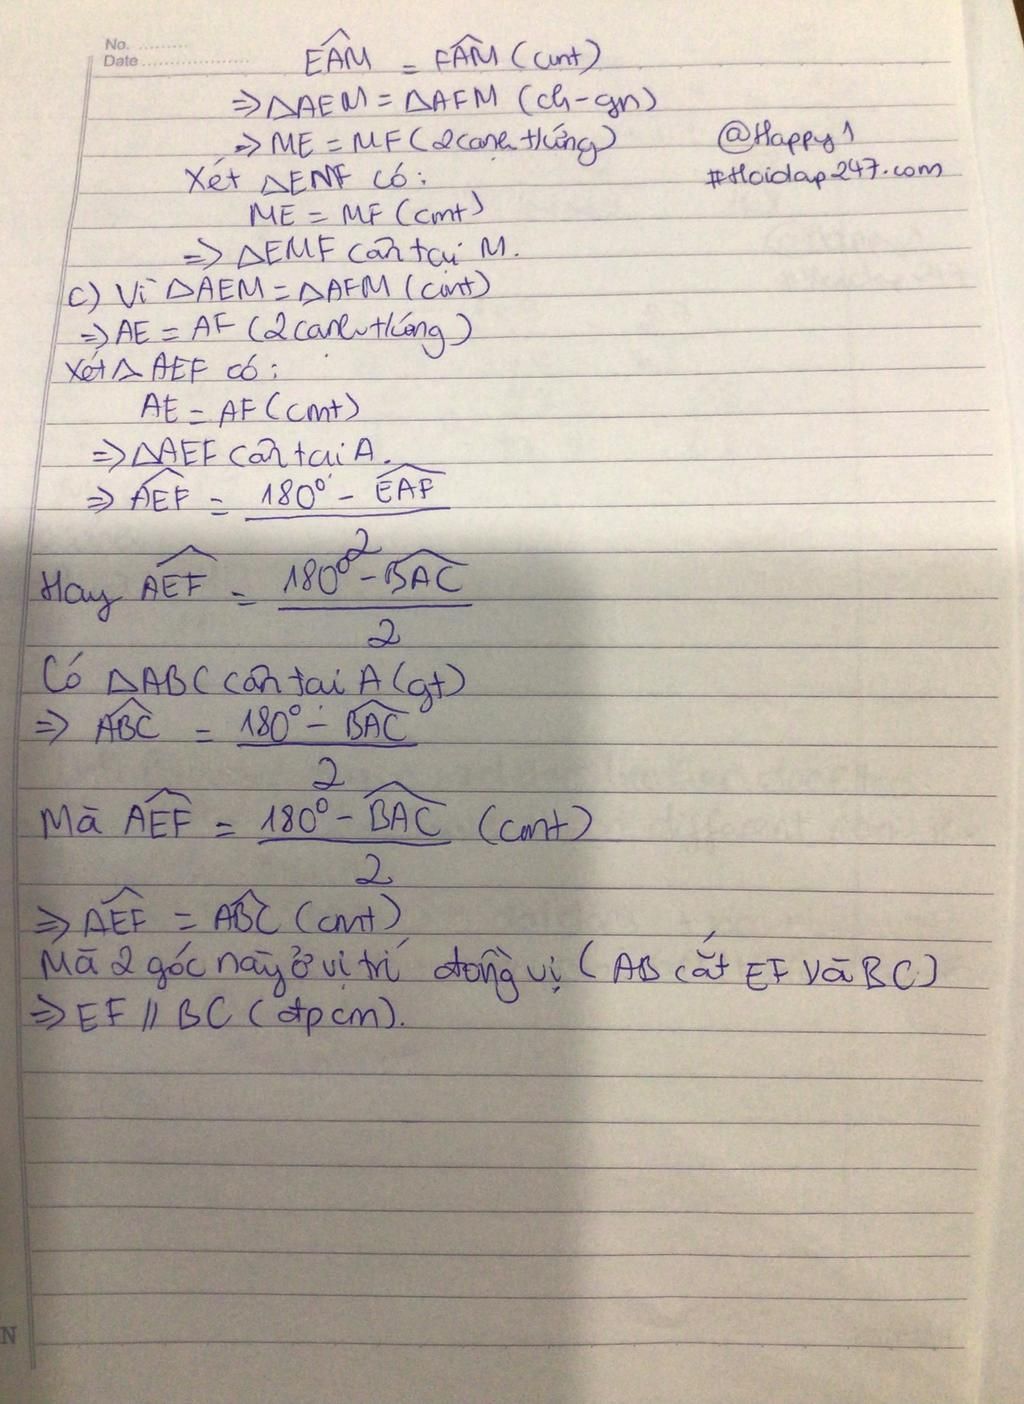 No. ..........
Date ....................
EÂM = FÂM (cmt)
=> ΔAEM = ΔAFM (ch-gn)
=> ME = MF (2 cạnh t/ứng)
@Happy1
#Hoidap247.com
Xét ΔEMF có:
ME = MF (cmt)
=> ΔEMF cân tại M.
c) Vì ΔAEM = ΔAFM (cmt)
=> AE = AF (2 cạnh t/ứng)
Xét Δ AEF có:
AE = AF (cmt)
=> ΔAEF cân tại A.
=> \widehat{AEF} = \frac{180° - \widehat{EAF}}{2}
Hay \widehat{AEF} = \frac{180° - \widehat{BAC}}{2}
Có ΔABC cân tại A (gt)
=> \widehat{ABC} = \frac{180° - \widehat{BAC}}{2}
Mà \widehat{AEF} = \frac{180° - \widehat{BAC}}{2} (cmt)
=> \widehat{AEF} = \widehat{ABC} (cmt)
Mà 2 góc này ở vị trí đồng vị (AB cắt EF và BC)
=> EF // BC (đpcm).
N